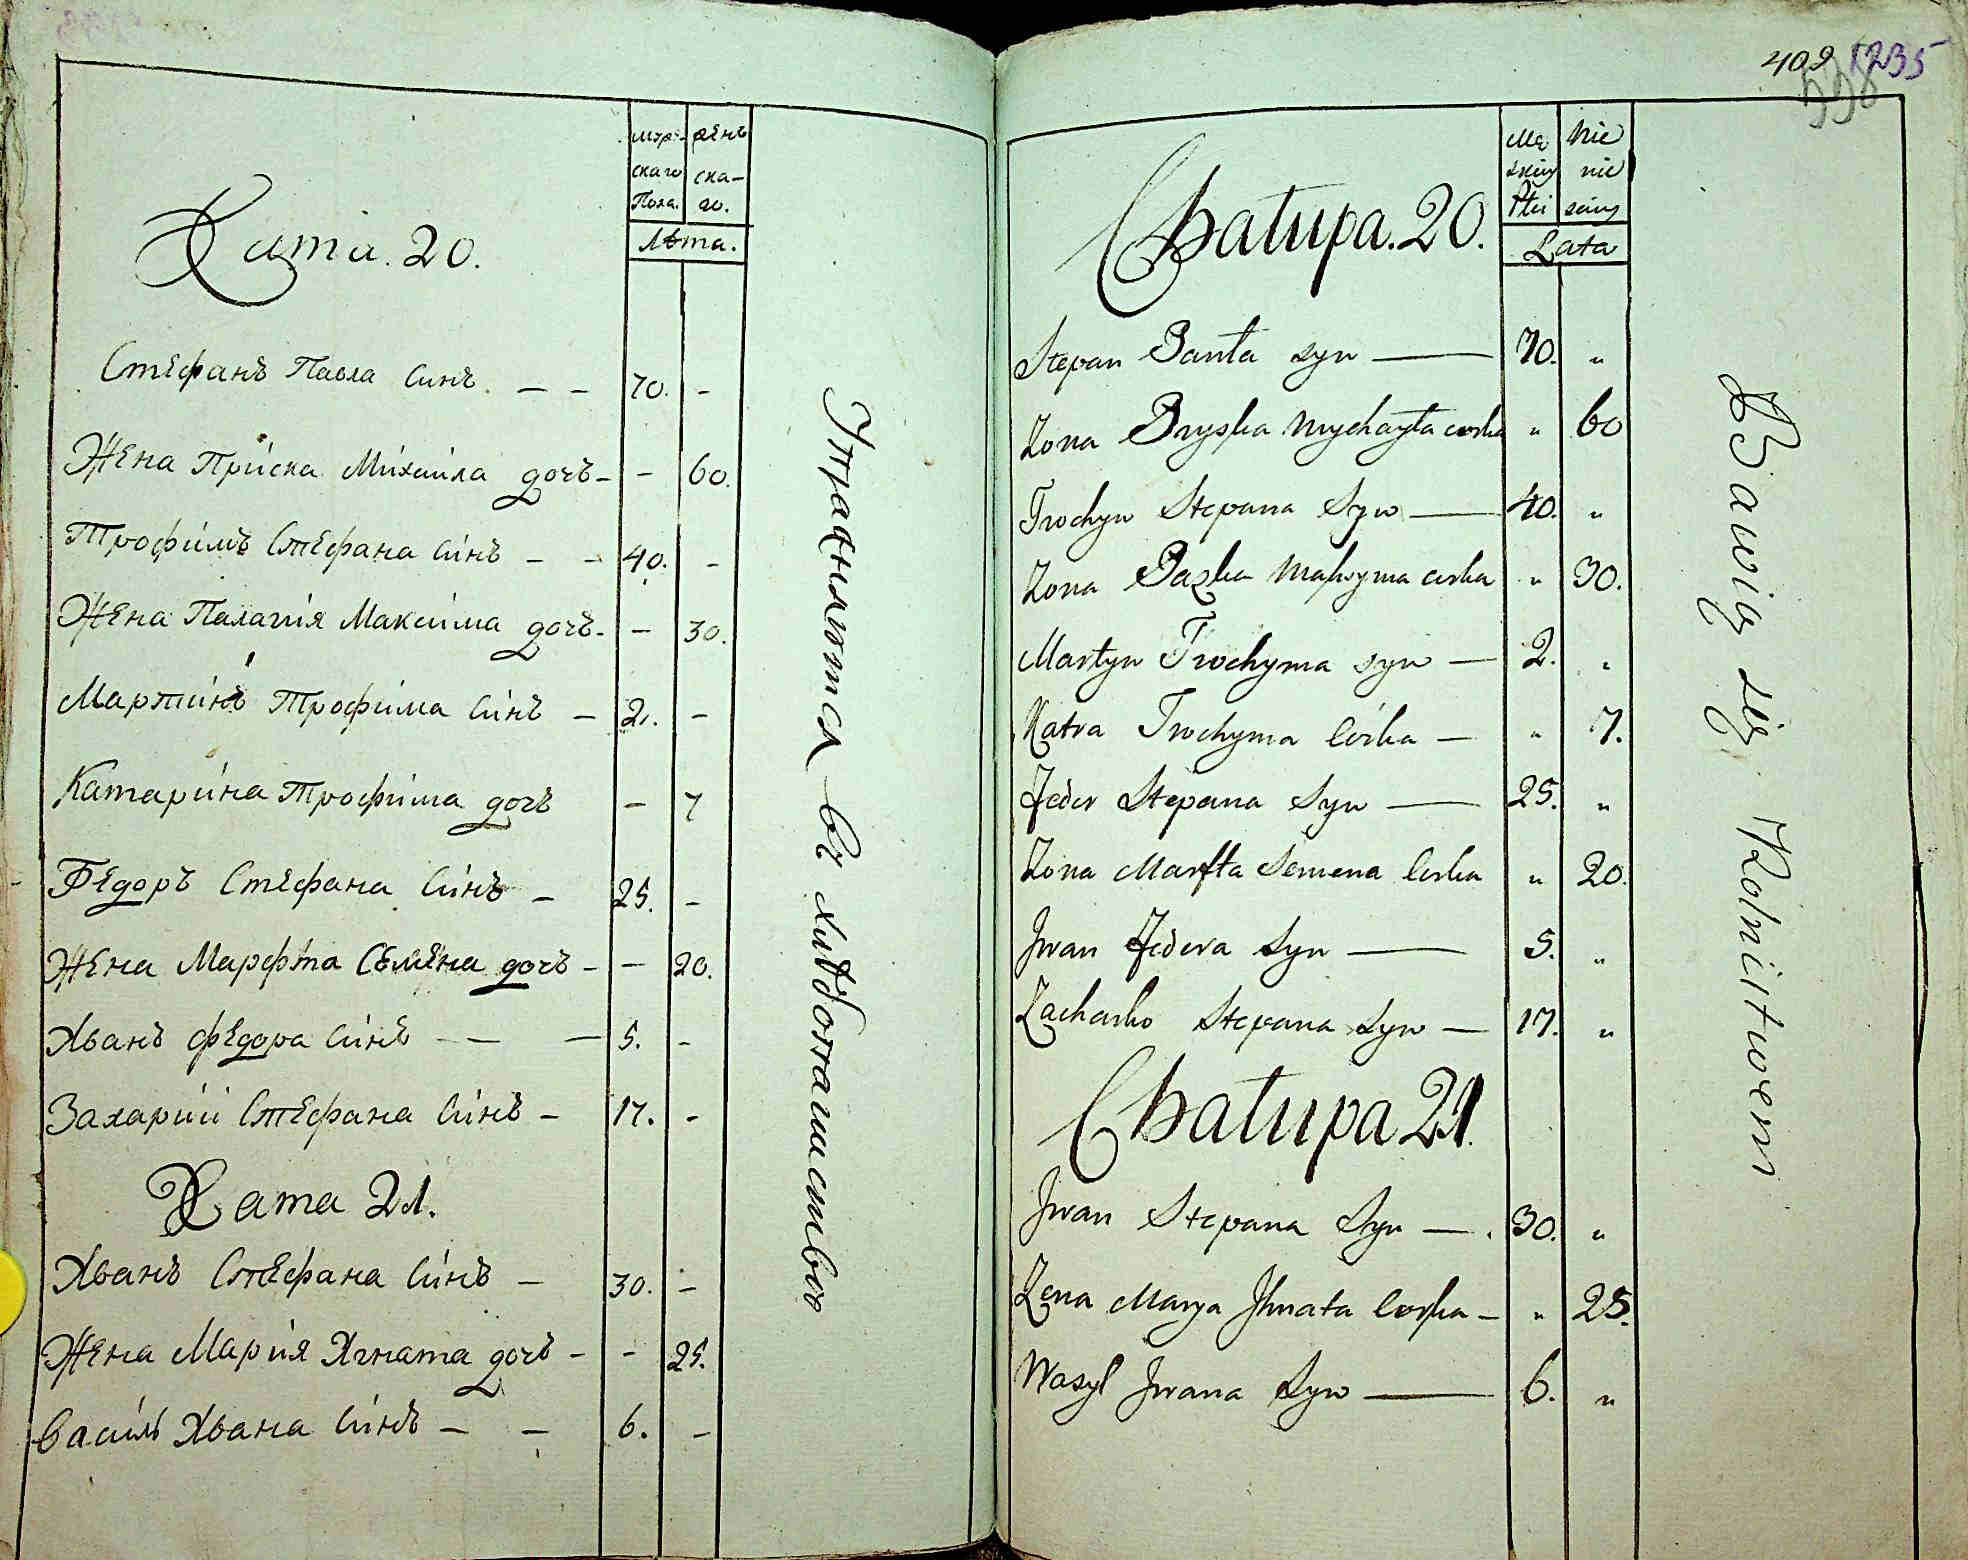 мужескаго Пола.
женскаго.
Лѣта.
Хата. 20.
Стефанъ Павла Синъ. — — 70. -
Жена Приска Михаила дочъ - - 60.
Трофимъ Стефана Синъ - - 40. -
Жена Палагия Максима дочъ - - 30.
Мартинъ Трофима Синъ - 2. -
Катарина Трофима дочъ - 7
Федоръ Стефана Синъ - 25. -
Жена Марфта Семена дочъ - - 20.
Иванъ Федора Синъ — — 5. -
Захарий Стефана Синъ - 17. -
Хата 21.
Иванъ Стефана Синъ - 30. -
Жена Мария Игната дочъ - - 25.
Василь Ивана Синъ - - 6. -
Упражняются въ хлѣбопашествѣ
409 1235
598
Męskiey Płci
Lata
Chałupa. 20.
Stepan Pawła syn — 70. "
Żona Pryska Mychayła corka " 60
Trochym Stepana Syn — 40. "
Żona Pazka Maksyma corka " 30.
Martyn Trochyma syn — 2. "
Katra Trochyma Córka — " 7.
Fedor Stepana Syn — 25. "
Żona Marfta Semena Corka " 20.
Jwan Fedora Syn — 5. "
Zacharko Stepana Syn — 17. "
Chałupa 21.
Jwan Stepana Syn — 30. "
Żona Marya Jhnata Corka — " 25.
Wasyl Jwana Syn — 6. "
Bawią się Rolnictwem